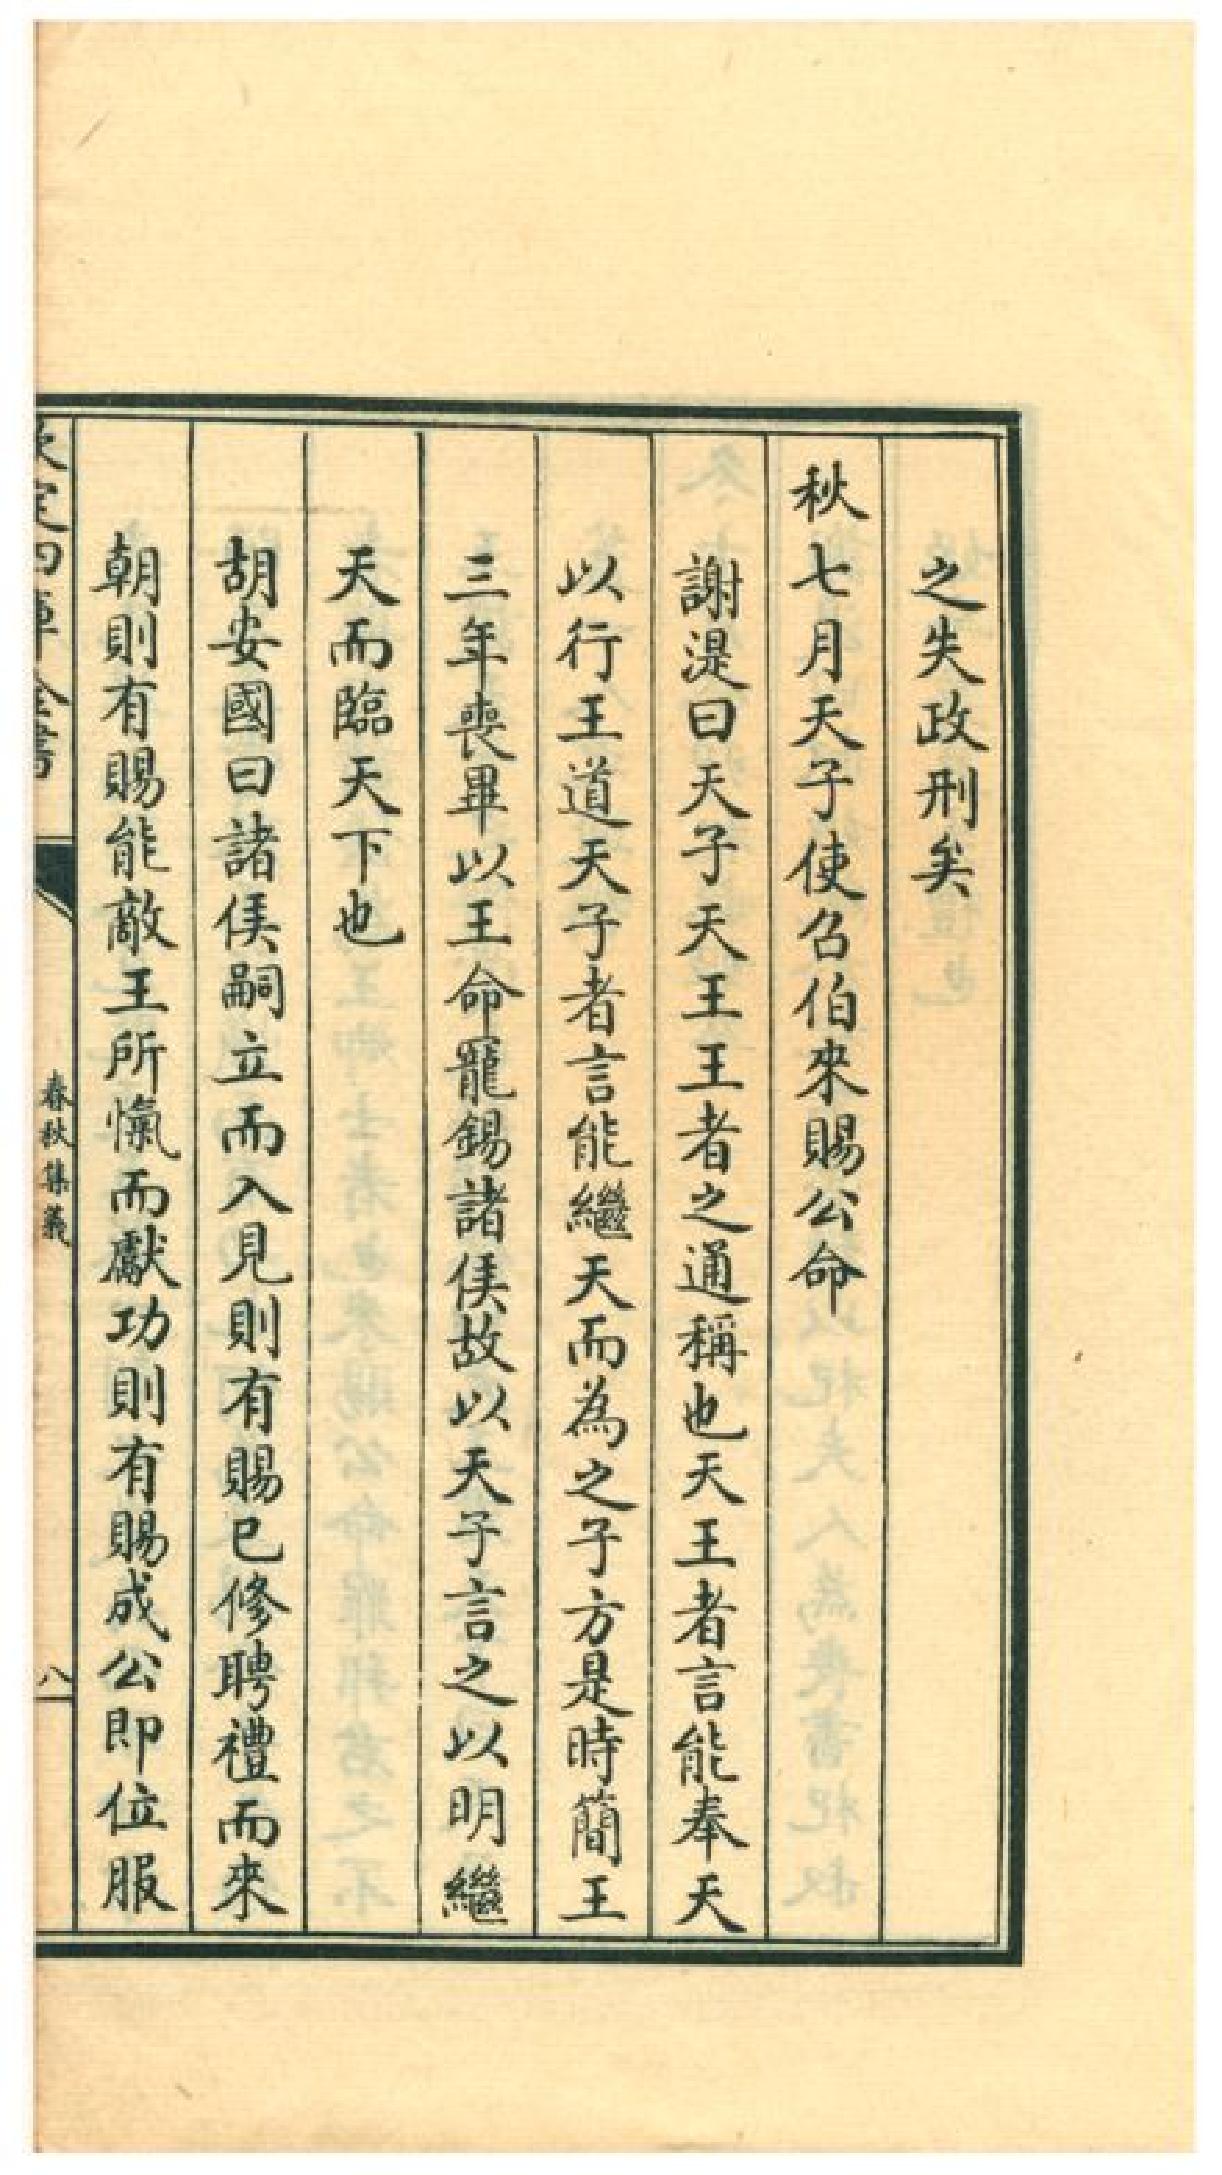 之失政刑矣
秋七月天子使召伯來賜公命
謝湜曰天子天王王者之通稱也天王者言能奉天
以行王道天子者言能繼天而為之子方是時簡王
三年喪畢以王命寵錫諸侯故以天子言之以明繼
天而臨天下也
胡安國曰諸侯嗣立而入見則有賜已修聘禮而來
朝則有賜能敵王所愾而獻功則有賜成公即位服
欽定四庫全書
春秋集義
八